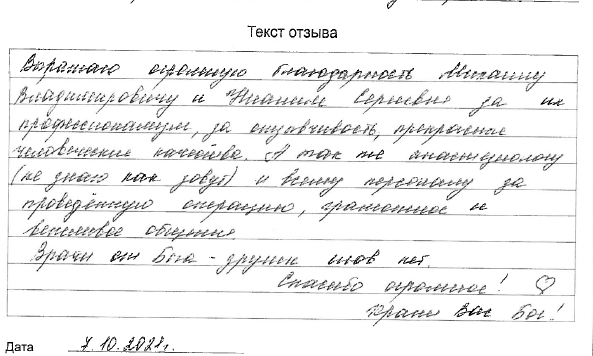 Текст отзыва
Выражаю огромную благодарность Михаилу
Владимировичу и Сергеевне за их
профессионализм, за отзывчивость, прекрасные
человеческие качества. А так же анастезиологу
(не знаю как зовут) и всему персоналу за
проведённую операцию, грамотное и
вежливое общение.
Врачи от Бога - других слов нет.
Спасибо огромное! ♡
Храни Вас Бог!
Дата 7.10.202 г.